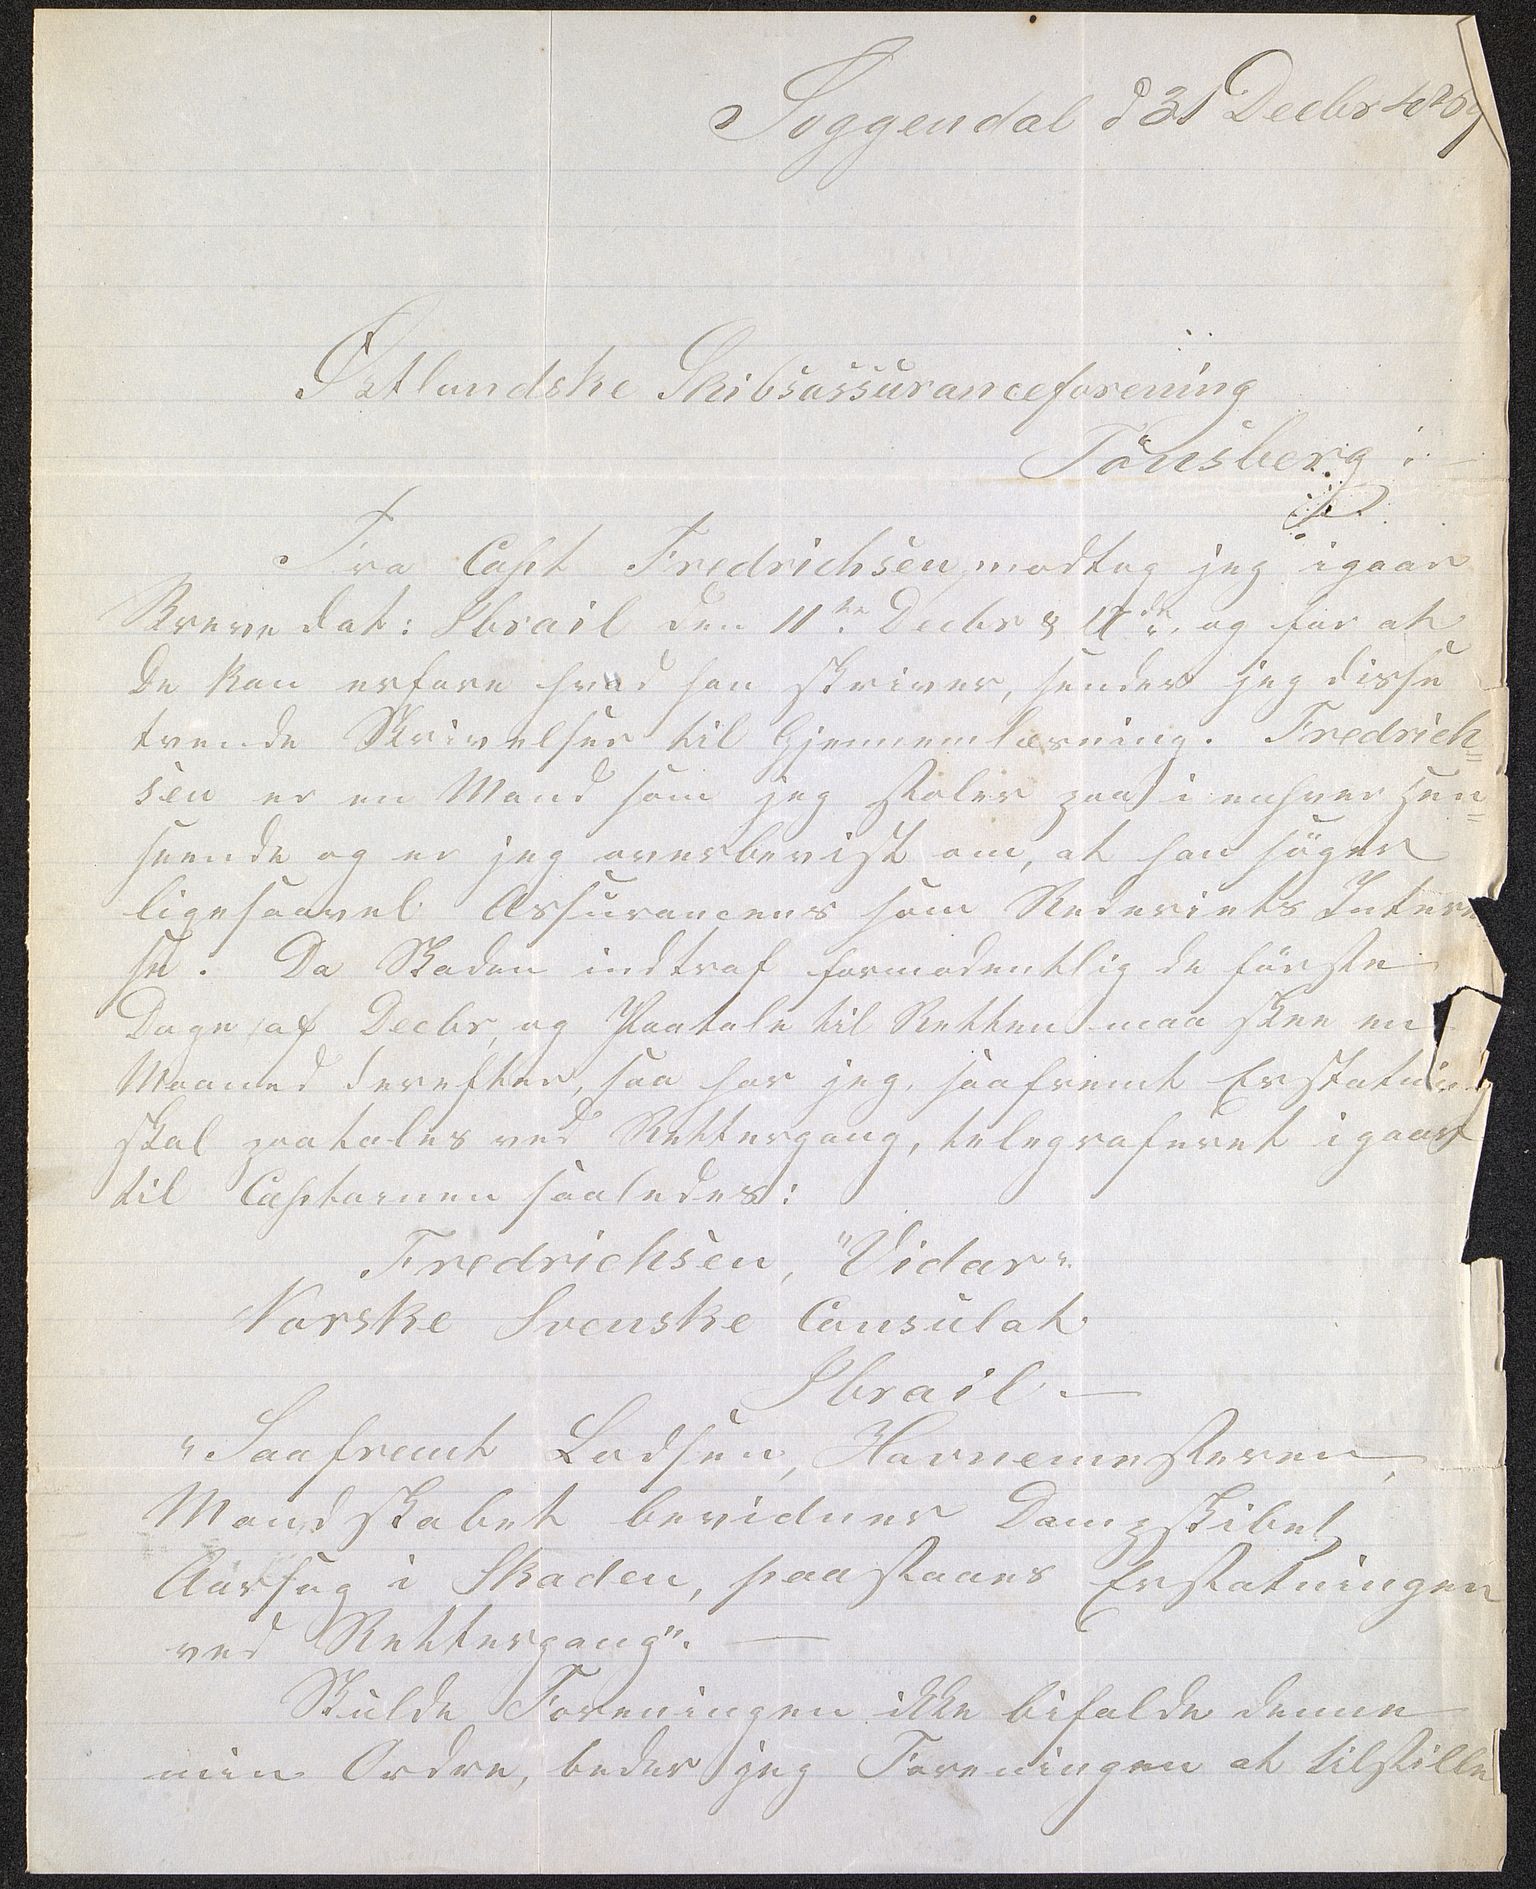 Soggendal d 31 Decbr 1869
Östlandske Skibsassuranceforening
Tönsberg
Fra Capt Fredrichsen modtog jeg igaar
Breve dat: Ibrail den 11te Decbr & 17de, og for at
De kan erfare hvad han skriver, sender jeg disse
tvende Skrivelser til Gjennemlæsning. Fredrich=
sen er en Mand som jeg stoler paa i enhver Hen=
seende og er jeg overbevist om, at han söger
ligesaavel Assurancens som Rederiets Intere
se. Da Skaden indtraf formodentlig de förste
Dage af Decbr, og Paatale til Retten maa skee en
Maaned derefter, saa har jeg, saafremt Erstatnin
skal paatales ved Rettergang, telegraferet igaar
til Captainen saaledes:
Fredrichsen, "Vidar"
Norske Svenske Consulat
Ibrail —
"Saafremt Lodsen, Havnemesteren,
Mandskabet bevidner Dampskibet
Aarsag i Skaden, paastaaes Erstatningen
ved Rettergang". —
Skulde Foreningen ikke bifalde denne
min Ordre, beder jeg Foreningen at tilstille